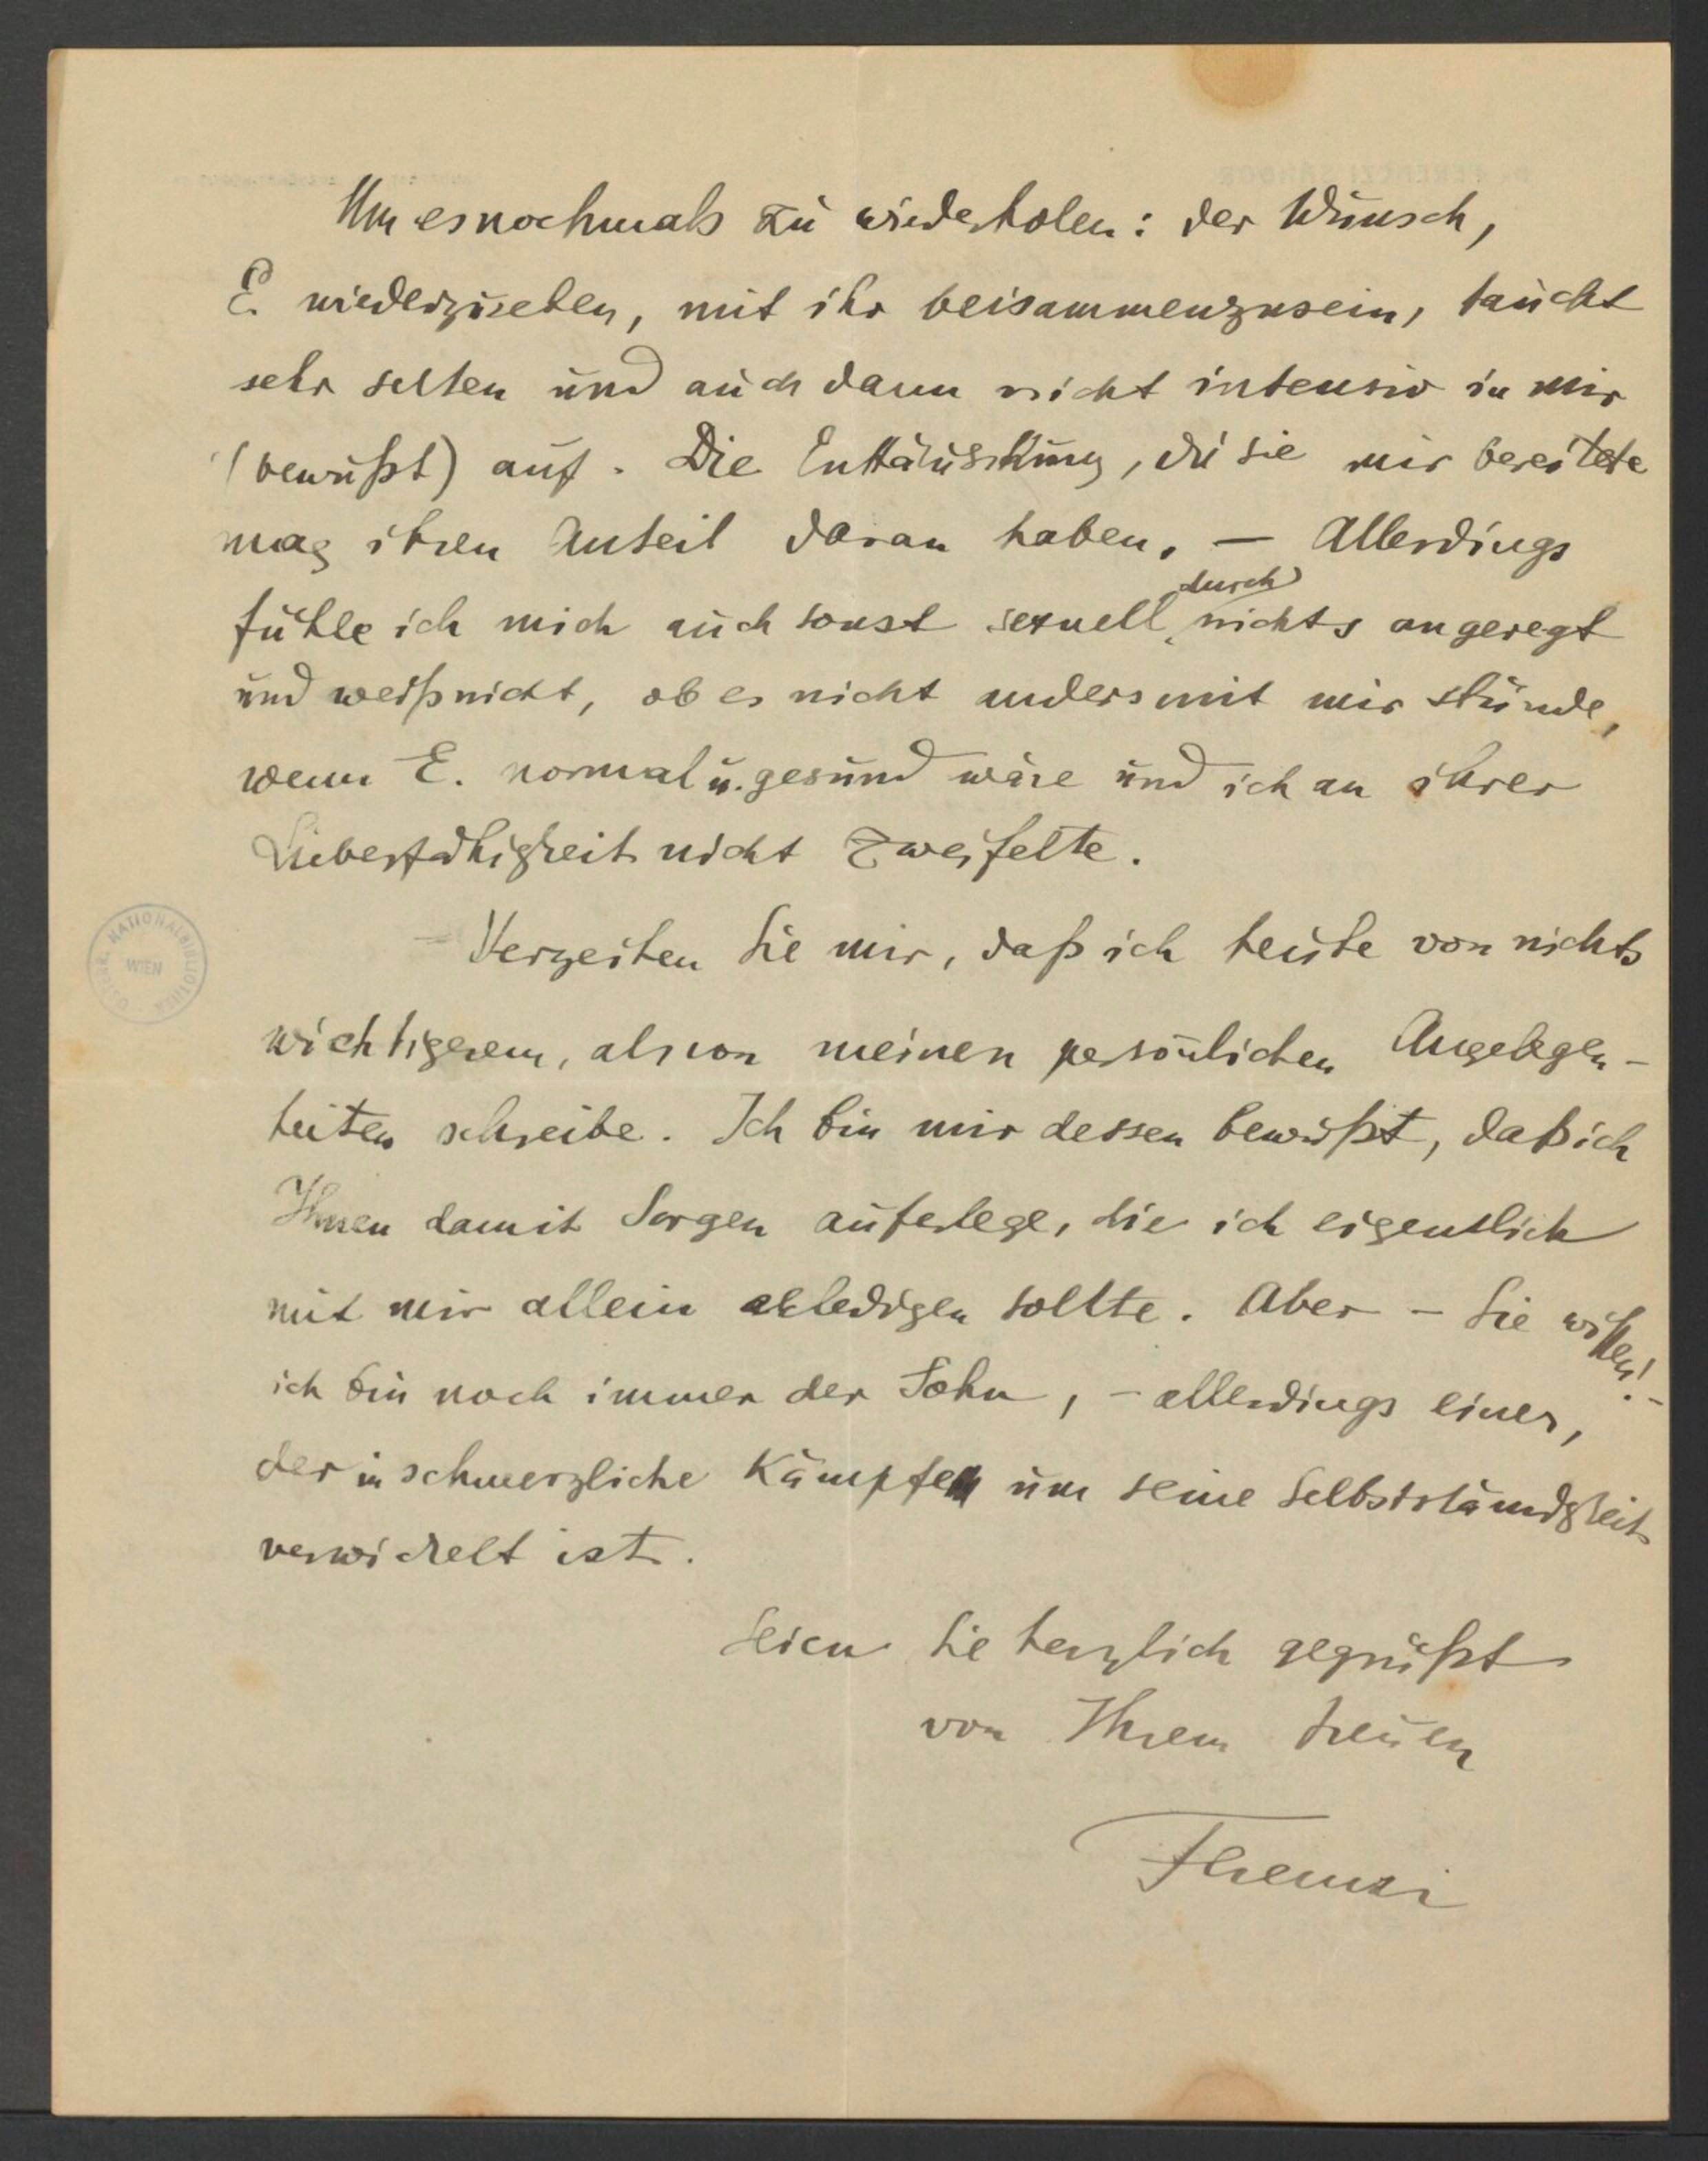 Um es nochmals zu wiederholen: der Wunsch,
E. wiederzusehen, mit ihr beisammenzusein, taucht
sehr selten und auch dann nicht intensiv in mir
(bewußt) auf. Die Enttäuschung, die sie mir bereitete
mag ihren Anteil daran haben. — Allerdings
durch
fühle ich mich auch sonst sexuell nichts angeregt
und weiß nicht, ob es nicht anders mit mir stünde,
wenn E. normal u. gesund wäre und ich an ihrer
Liebesfähigkeit nicht zweifelte.
Verzeihen Sie mir, daß ich heute von nichts
wichtigerem, als von meinen persönlichen Angelegen-
heiten schreibe. Ich bin mir dessen bewußt, daß ich
Ihnen damit Sorgen auferlege, die ich eigentlich
mit mir allein erledigen sollte. Aber – Sie wissen! –
ich bin noch immer der Sohn, – allerdings einer,
der in schmerzliche Kämpfe um seine Selbstständigkeit
verwickelt ist.
Seien Sie herzlich gegrüßt
von Ihrem treuen
Ferenczi
ÖSTERR. NATIONALBIBLIOTHEK
WIEN